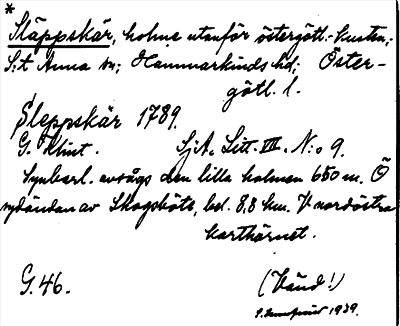 *
Släppskär, holme utanför östergötl.-kusten,
S:t Anna sn; Hammarkinds hd; Öster-
götl. l.
Sleppskär 1789.
G. Klint. Sjk. Litt. III. N:o 9.
Synbarl. avsågs den lilla holmen 650 m. Ö
sydändan av Skogsböte, bel. 8,8 km. V nordöstra
karthörnet.
G. 46. (Vänd!)
1939.